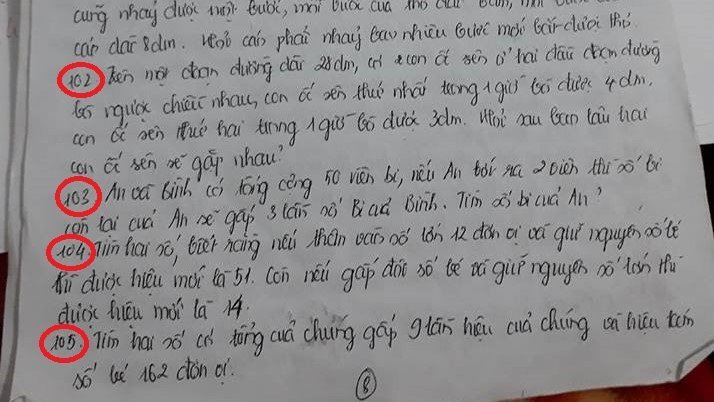 cũng nhảy được một bước, mỗi bước của thỏ
cáo dài 8dm. Hỏi cáo phải nhảy bao nhiêu bước mới bắt được thỏ.
102 Trên một đoạn đường dài 28dm, có 2 con ốc sên ở hai đầu đoạn đường
bò ngược chiều nhau, con ốc sên thứ nhất trong 1 giờ bò được 4dm,
con ốc sên thứ hai trong 1 giờ bò được 3dm. Hỏi sau bao lâu hai
con ốc sên sẽ gặp nhau?
103 An và Bình có tổng cộng 50 viên bi, nếu An bớt ra 2 viên thì số bi
còn lại của An sẽ gấp 3 lần số Bi của Bình. Tìm số bi của An?
104. Tìm hai số, biết rằng nếu thêm vào số lớn 12 đơn vị và giữ nguyên số bé
thì được hiệu mới là 51. Còn nếu gấp đôi số bé và giữ nguyên số lớn thì
được hiệu mới là 14.
105. Tìm hai số có tổng của chúng gấp 9 lần hiệu của chúng và hiệu kém
số bé 162 đơn vị.
8